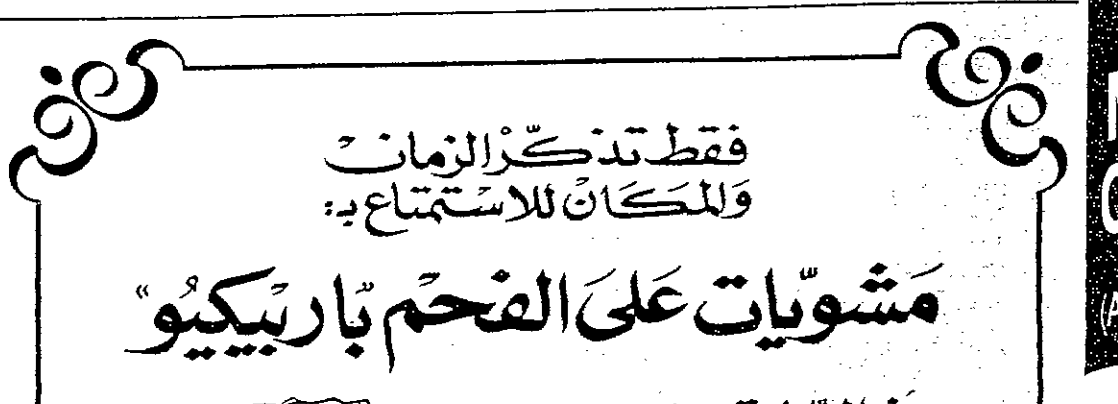 فقط تذكّرْ الزمان
وَالمَكَانْ للاسْتمتاع بـ:
مَشوّيات عَلىَ الفحمْ "باربيكيُو"